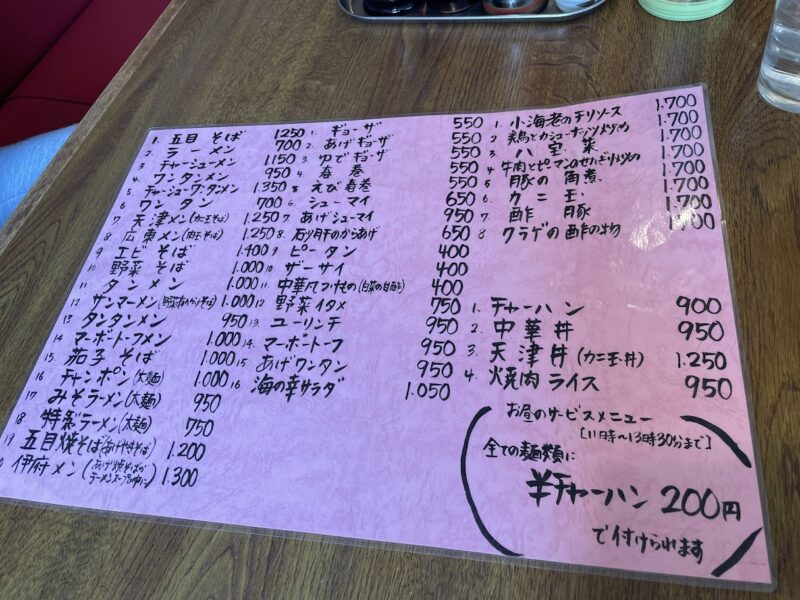 1. 五目そば 1250
2 ラーメン 700
3 チャーシューメン 1.150
4 ワンタンメン 950
5 チャーシューワンタンメン 1.350
6 ワンタン 700
7 天津メン(カニ玉そば) 1.250
8 広東メン(肉玉そば) 1.250
9 エビそば 1.400
10 野菜そば 1.000
11 タンメン 1.000
12 サンマーメン 1.000
13 タンタンメン 950
14 マーボートーフメン 1.000
15 茄子そば 1.000
16 チャンポン(太麺) 1.000
17 みそラーメン(太麺) 950
18 特製ラーメン(太麺) 750
19 五目焼そば(あげやきそば) 1.200
伊府メン(あげ焼そばがラーメンスープの中に) 1.300
1 ギョーザ 550
2 あげギョーザ 550
3 ゆでギョーザ 550
4 春巻 550
5 えび春巻 550
6 シューマイ 650
7 あげシューマイ 950
8 砂肝のからあげ 650
9 ピータン 400
10 ザーサイ 400
11 中華風つけもの(白菜の甘酢) 400
12 野菜イタメ 750
13 ユーリンチ 950
14 マーボートーフ 950
15 あげワンタン 950
16 海の幸サラダ 1.050
1 小海老のチリソース 1.700
2 鶏とカシューナッツ炒め 1.700
3 八宝菜 1.700
4 牛肉とピーマンのせんぎり炒め 1.700
5 豚の角煮 1.700
6 カニ玉 1.700
7 酢豚 1.700
8 クラゲの酢の物 1.700
1. チャーハン 900
2. 中華丼 950
3. 天津丼(カニ玉丼) 1.250
4. 焼肉ライス 950
お昼のサービスメニュー
[11時〜13時30分まで]
全ての麺類に
半チャーハン 200円
で付けられます